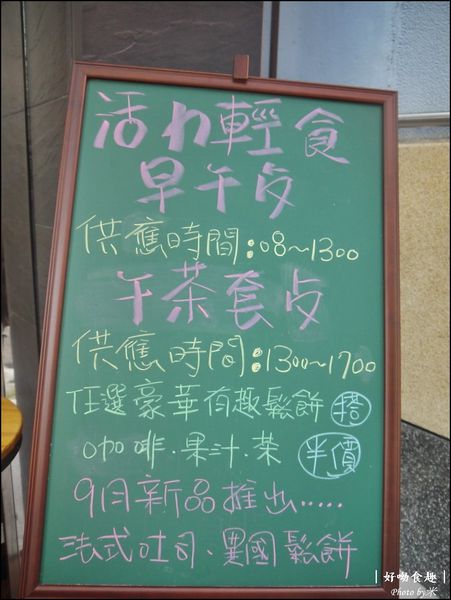 活力輕食
早午卣
供應時間:08~1300
午茶套卣
供應時間:1300~1700
任選豪華有趣鬆餅 搭
咖啡.果汁.茶 半價
9月新品推出.....
法式吐司、異國鬆餅
|好吻食趣|
Photo by 米